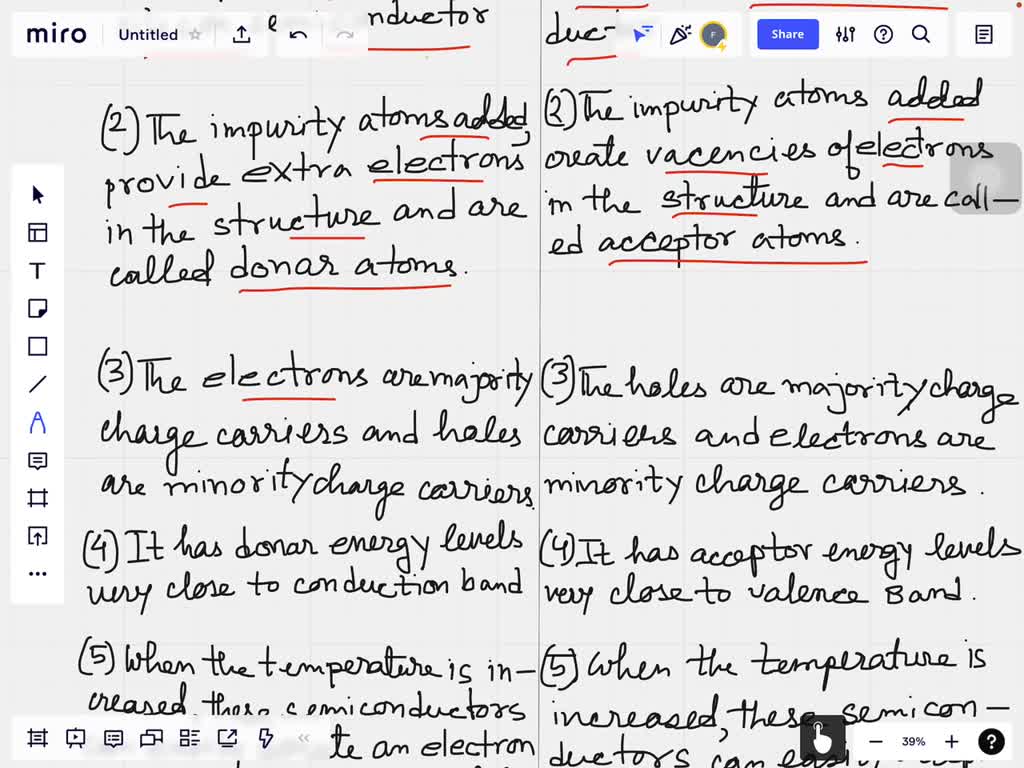 miro
Untitled
Share
nductor
duct
(2) The impurity atoms added,
provide extra electrons
in the structure and are
called donar atoms.
(3) The electrons are majority
charge carriers and holes
are minority charge carriers.
(4) It has donar energy levels
very close to conduction band
(5) When the temperature is in-
creased, these semiconductors
te an electron
(2) The impurity atoms added
create vacencies of electrons
in the structure and are call-
ed acceptor atoms.
(3) The holes are majority charge
carriers and electrons are
minority charge carriers.
(4) It has acceptor energy levels
very close to valence Band.
(5) When the temperature is
increased, these semicon-
ductors can easily
39%